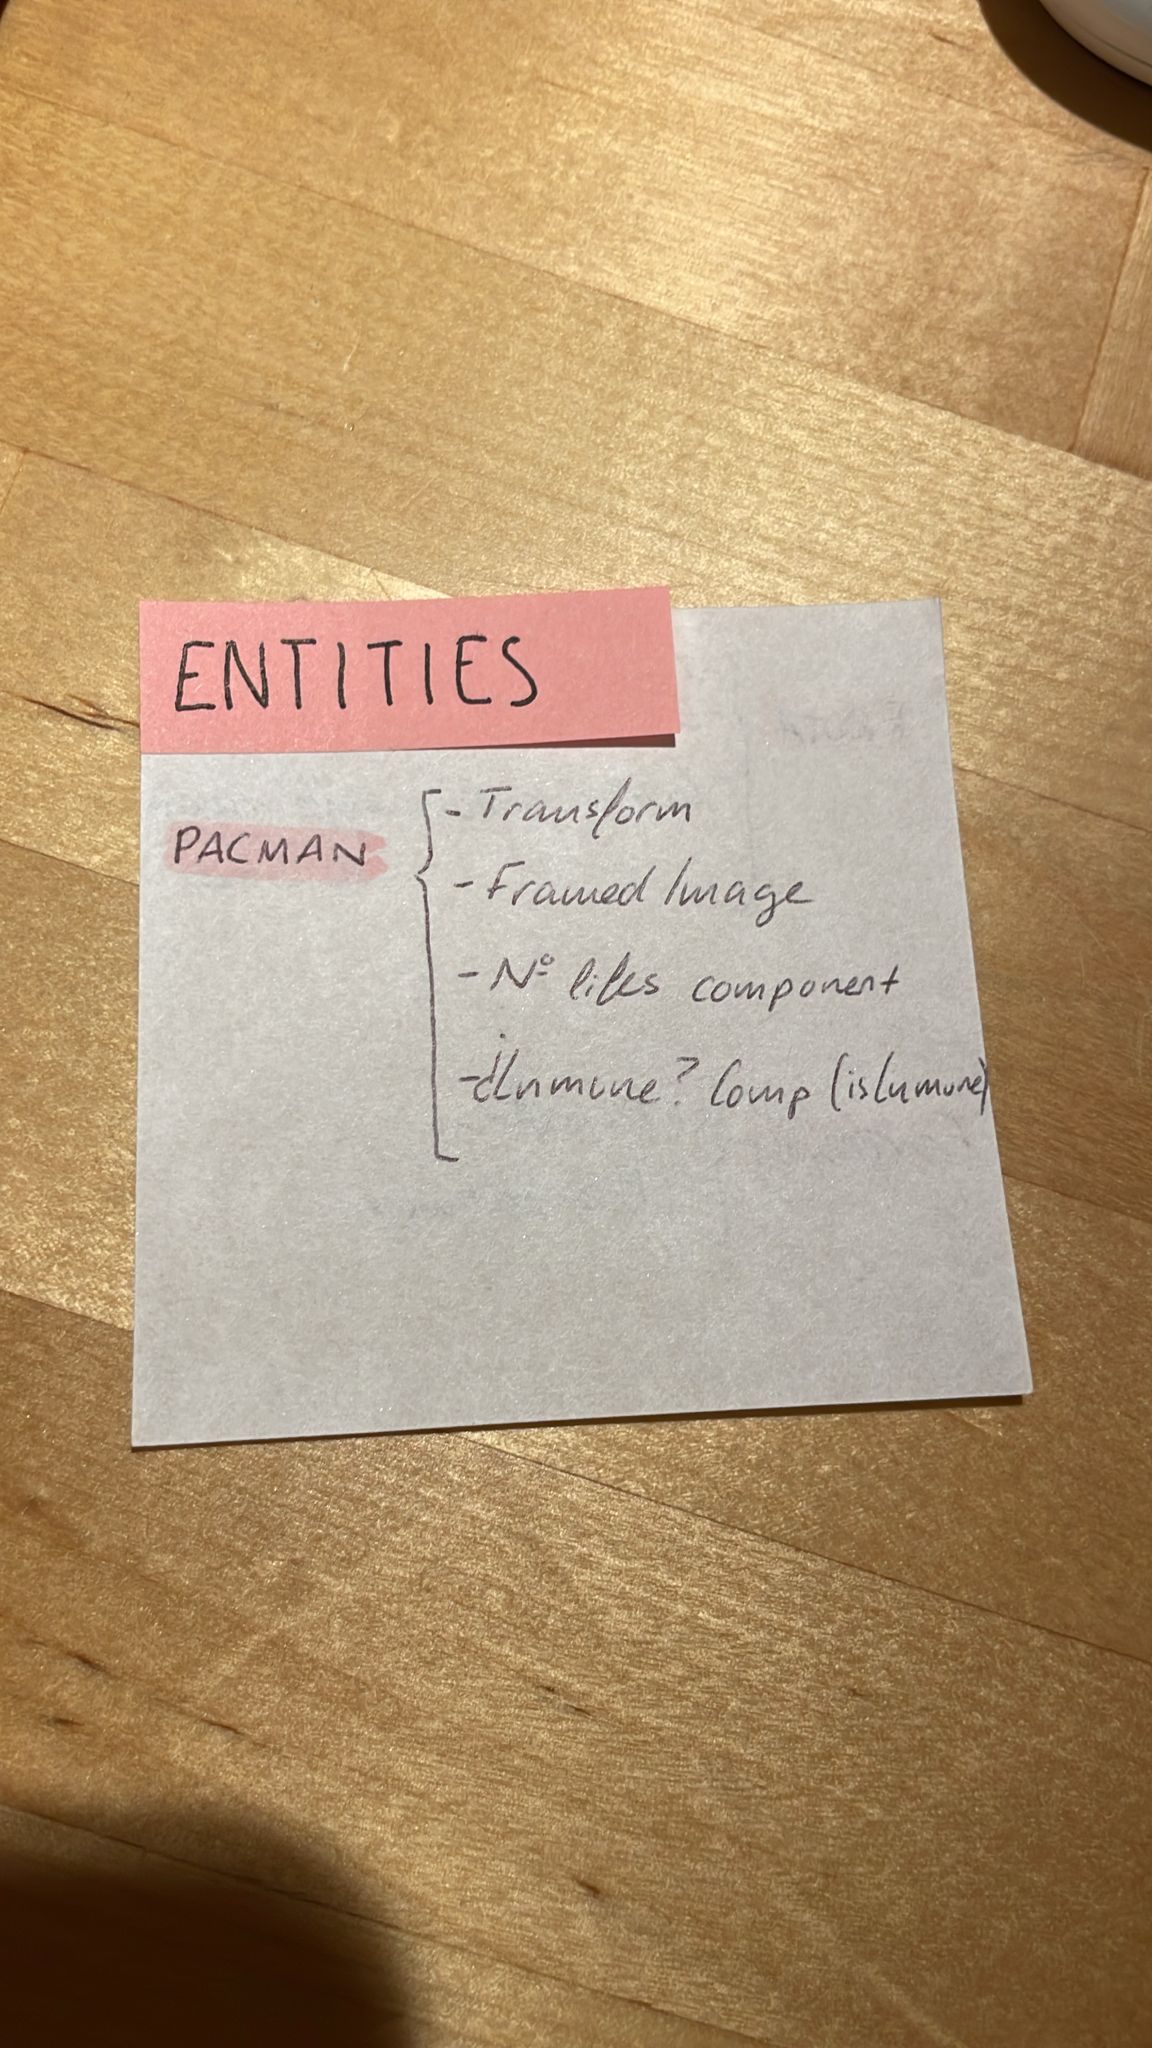 ENTITIES
PACMAN
- Transform
- Framed Image
- Nº lifes component
- ¿Inmune? Comp (isInmune)